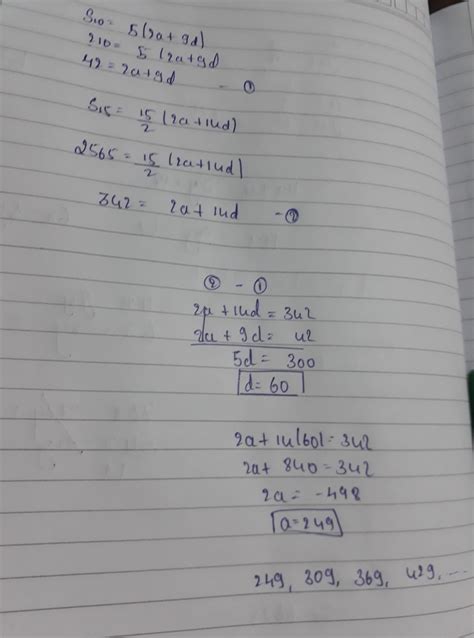 S₁₀ = 5(2a+9d)
210 = 5(2a+9d)
42 = 2a+9d - ①
S₁₅ = 15/2 (2a+14d)
2565 = 15/2 (2a+14d)
342 = 2a+14d - ②
② - ①
2a + 14d = 342
2a + 9d = 42
5d = 300
d = 60
2a + 14(60) = 342
2a + 840 = 342
2a = -498
a = 249
249, 309, 369, 429, ...